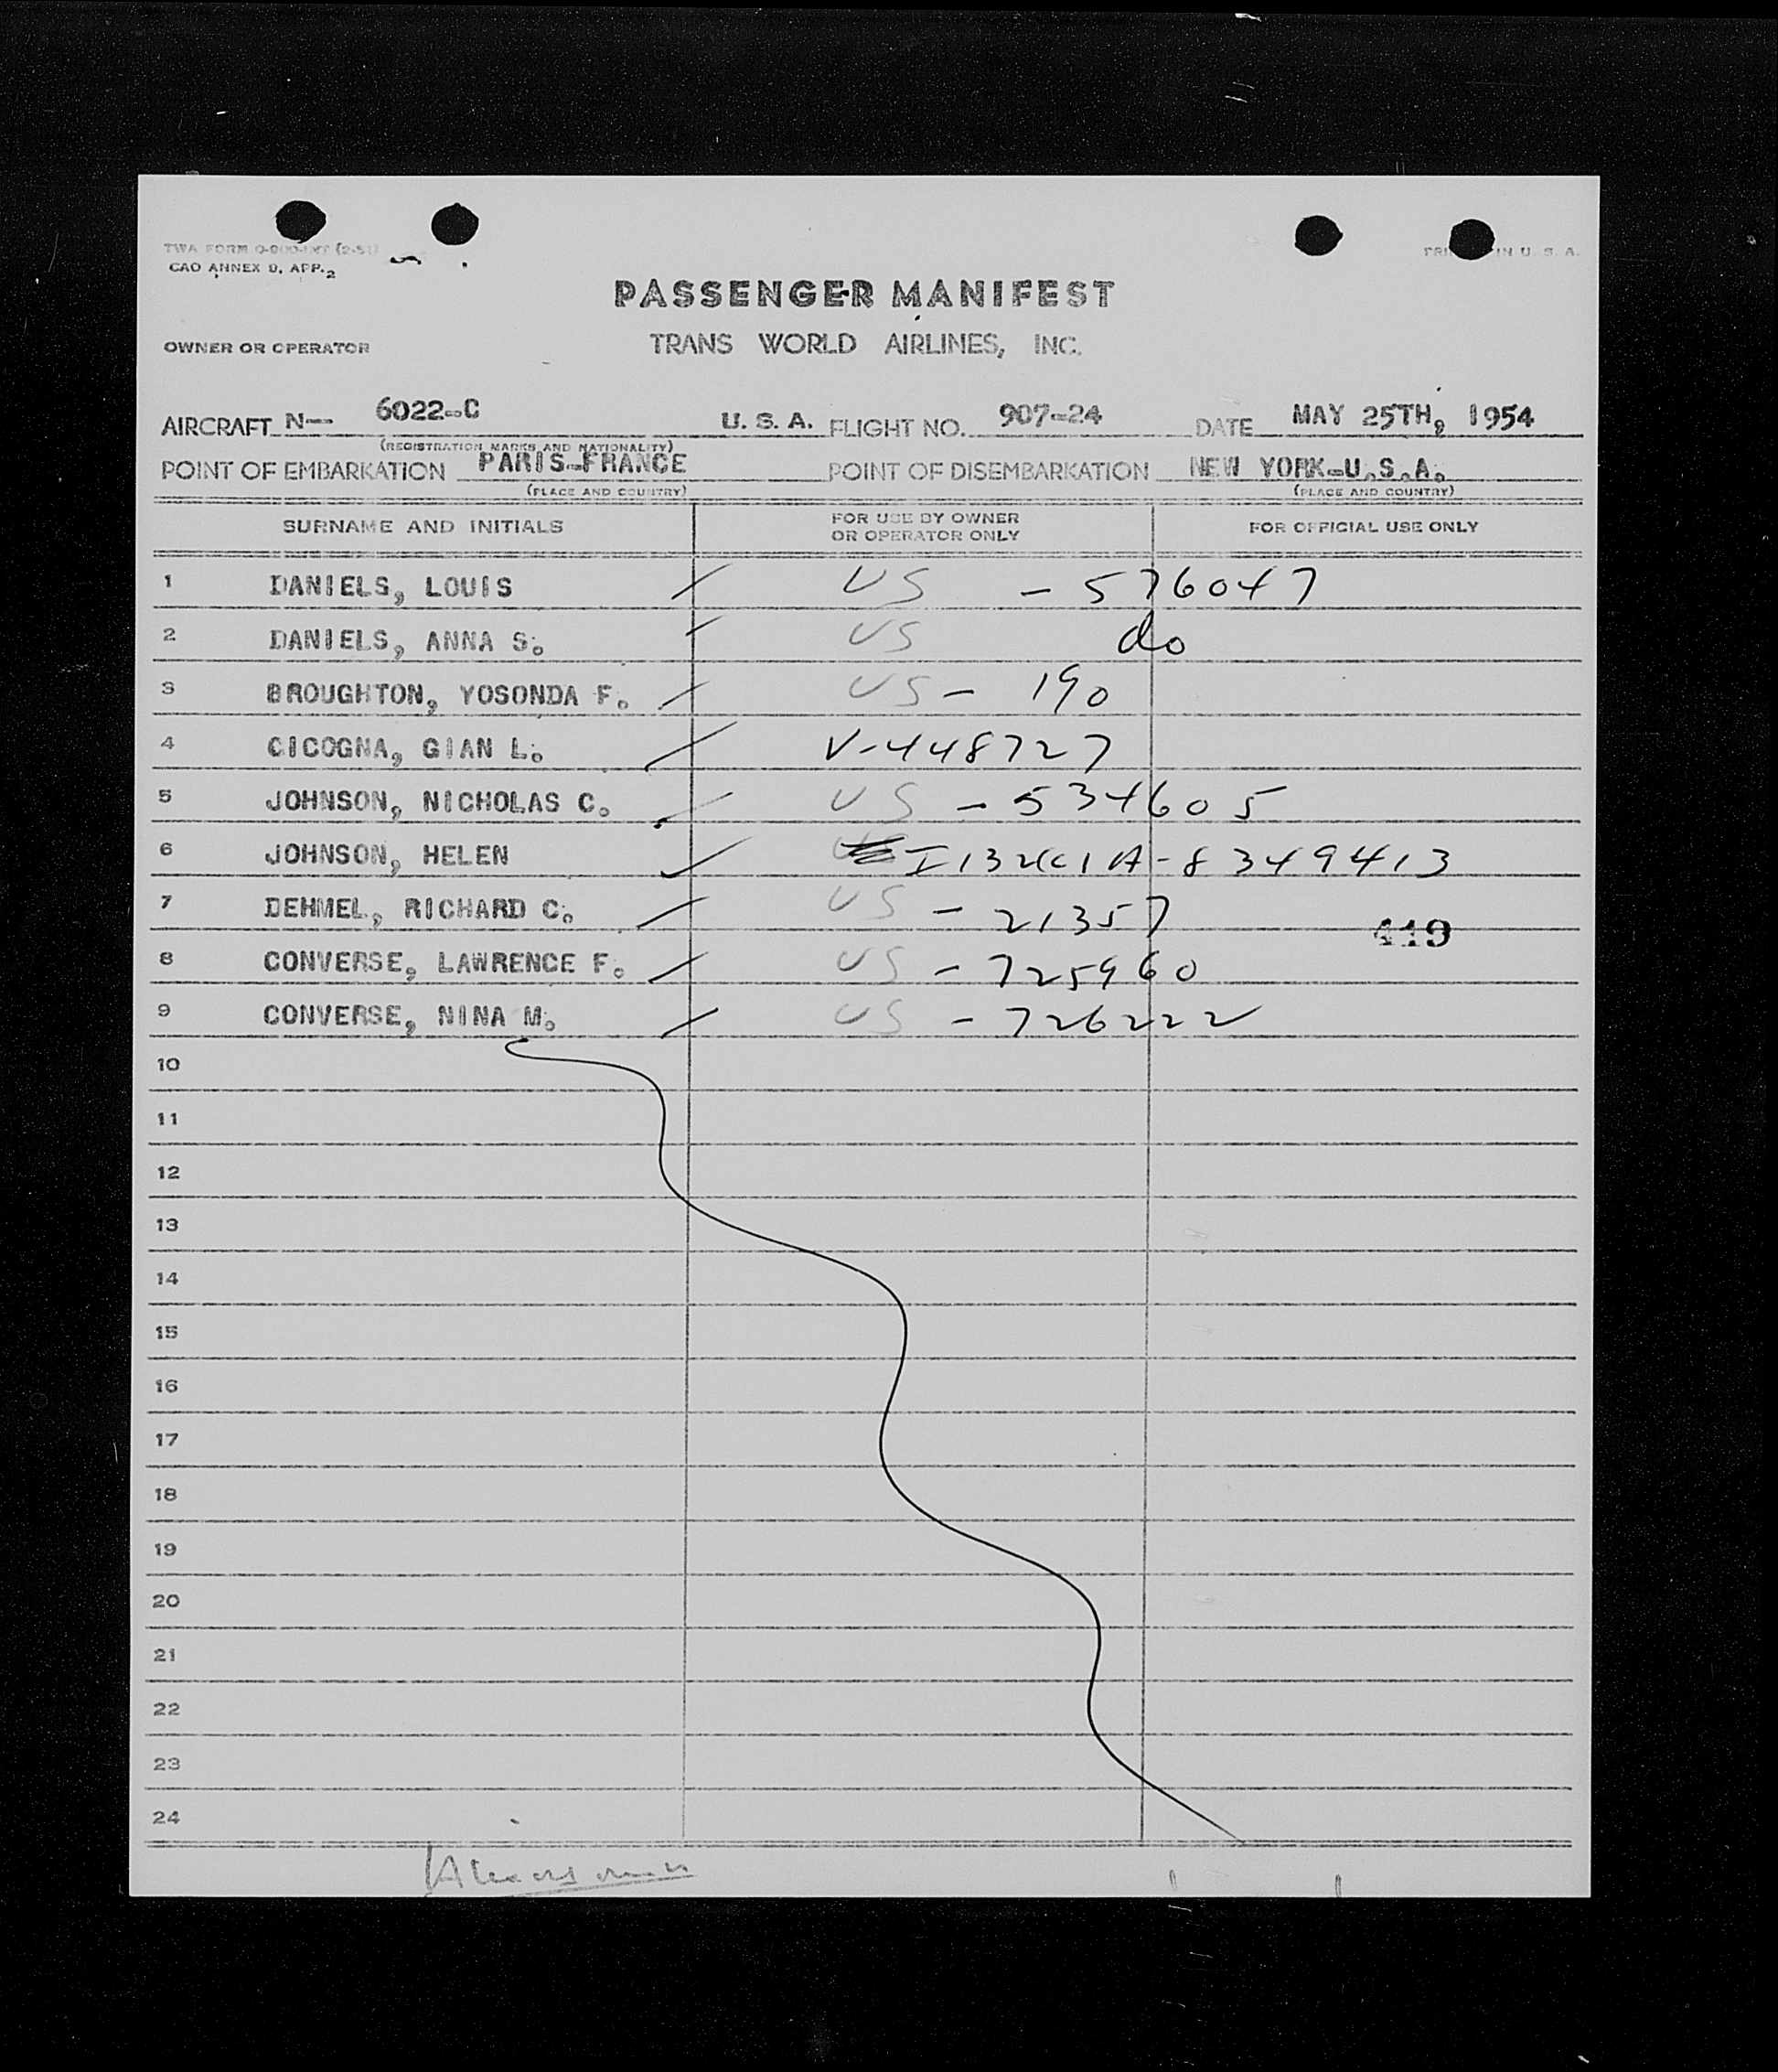 TWA FORM
CAO ANNEX 9, APP. 2
IN U. S. A.
PASSENGER MANIFEST
OWNER OR OPERATOR TRANS WORLD AIRLINES, INC.
AIRCRAFT N— 6022-C U. S. A. FLIGHT NO. 907-24 DATE MAY 25TH, 1954
(REGISTRATION MARKS AND NATIONALITY)
POINT OF EMBARKATION PARIS-FRANCE POINT OF DISEMBARKATION NEW YORK-U.S.A.
(PLACE AND COUNTRY) (PLACE AND COUNTRY)
SURNAME AND INITIALS FOR USE BY OWNER OR OPERATOR ONLY FOR OFFICIAL USE ONLY
1 DANIELS, LOUIS / US - 576047
2 DANIELS, ANNA S. / US do
3 BROUGHTON, YOSONDA F. / US - 190
4 CICOGNA, GIAN L. / V-448727
5 JOHNSON, NICHOLAS C. / US - 534605
6 JOHNSON, HELEN A-8349413
7 DEHMEL, RICHARD C. / US - 21357
419
8 CONVERSE, LAWRENCE F. / US - 725960
9 CONVERSE, NINA M. / US - 726222
10
11
12
13
14
15
16
17
18
19
20
21
22
23
24